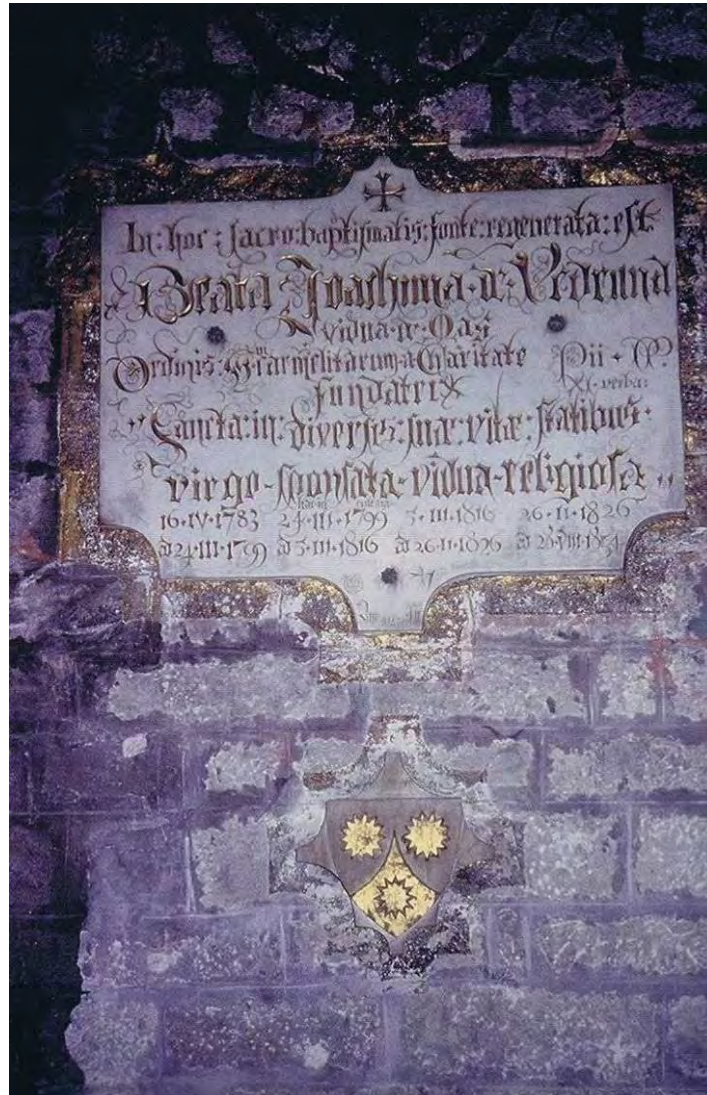 In : hoc : sacro : baptismatis : fonte : regenerata : est
Beata Joachima · de · Vedruna
vidua · de · Mas
Ordinis : Carmelitarum a Charitate
fundatrix
Pii
XI · verba :
Sancta : in : diversis : suæ : vitæ : statibus ·
virgo - sponsata - vidua - religiosa
16 · IV · 1783 24 · III · 1799 5 · III · 1816 26 · II · 1826
ad 24 · III · 1799 ad 5 · III · 1816 ad 26 · II · 1826